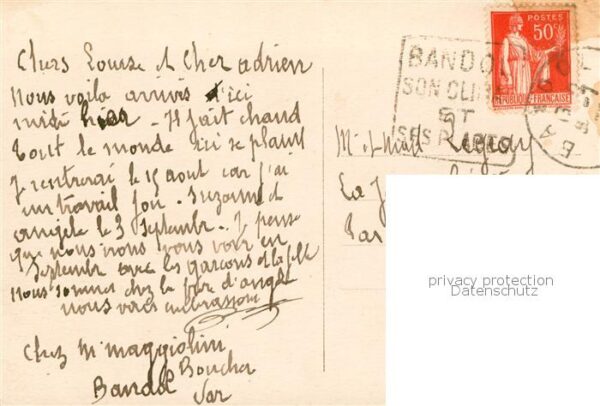 Chers Louise et Cher adrien
nous voila arrivés d'ici
midi hier - Il fait chaud
tout le monde ici se plaint
Je rentrerai le 15 aout car j'ai
un travail fou - Suzanne et
angele le 3 Septembre - Je pense
que nous irons vous voir en
Septembre avec les garcons et la fille
nous sommes chez le père d'angele
nous vous embrassons
Chez Mr maggiolini
Boucher
Bandol
Var
POSTES
50c
RÉPUBLIQUE FRANÇAISE
BANDOL
SON CLIMAT
ET
SES PLAGES
Mr et Mad
La
Var
privacy protection
Datenschutz